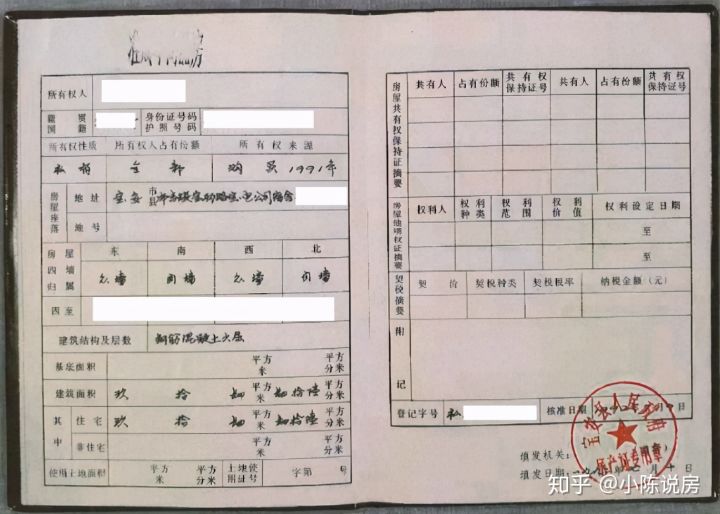 准成本商品房
所有权人
籍贯 国籍 身份证号码 护照号码
所有权性质 所有权人占有份额 所有权来源
私有 全部 购买1991年
房屋座落 地址 宝安 市县
地号
房屋四墙归属 东 南 西 北
公墙 自墙 公墙 自墙
四至
建筑结构及层数 钢筋混凝土六层
基底面积 平方米 平方分米
建筑面积 玖拾 平方米 平方分米
其中 住宅 玖拾 平方米 平方分米
非住宅 平方米 平方分米
使用土地面积 平方米 平方分米 土地使用证号 字第 号
房屋共有权保持证摘要 共有人 占有份额 共有权保持证号 共有人 占有份额 共有权保持证号
房屋他项权证摘要 权利人 权利种类 权利范围 权利价值 权利设定日期
至
至
契税摘要 契价 契税种类 契税税率 纳税金额(元)
附记
登记字号 私 核准日期
填发机关:
填发日期:
宝安县人民政府
房产证专用章
知乎 @小陈说房